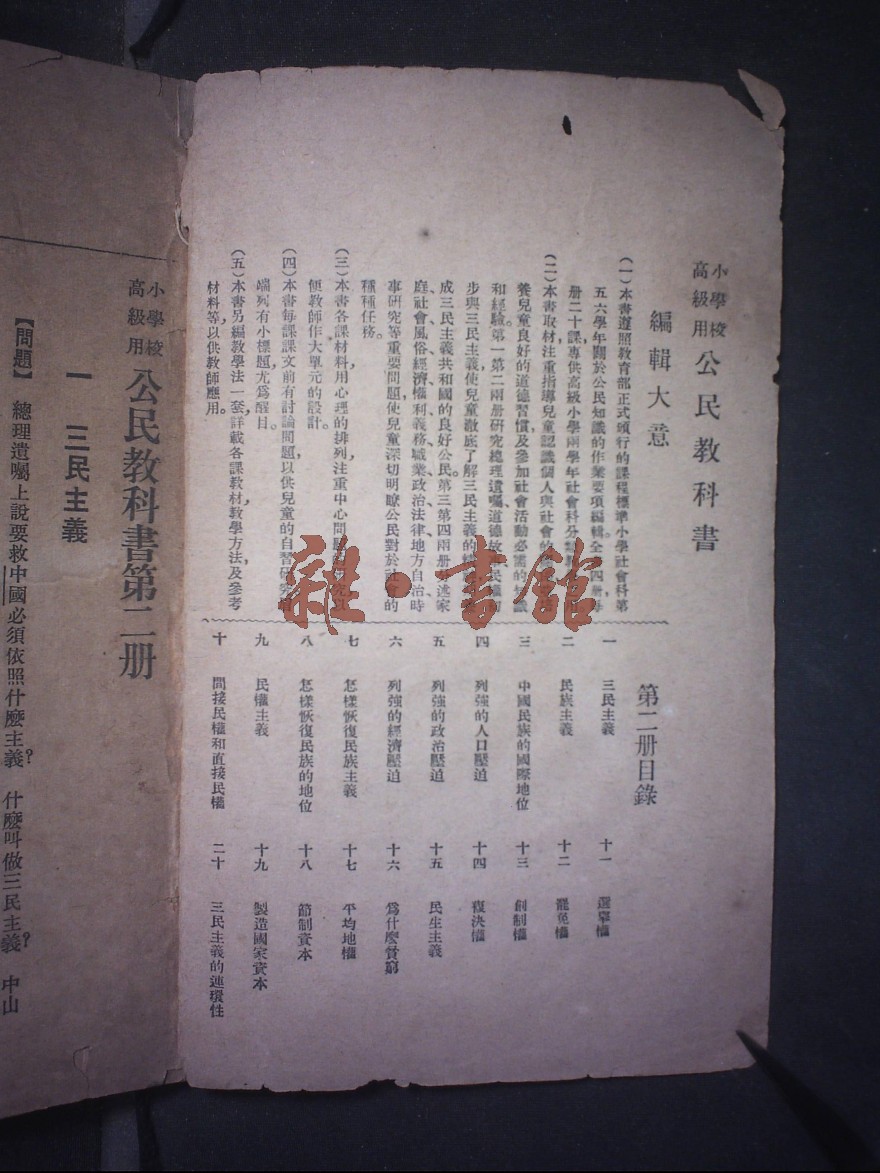 小學校
高級用
公民教科書
編輯大意
(一)本書遵照教育部正式頒行的課程標準小學社會科第
五六學年關於公民知識的作業要項編輯。全
四册,每
册二十課,專供高級小學兩學年社會科分
(二)本書取材注重指導兒童認識個人與社會的
養兒童良好的道德習慣,及參加社會活動必需的知識
和經驗。第一第二兩册研究總理遺囑、道德故
民權初
步與三民主義,使兒童澈底了解三民主義的精
成三民主義共和國的良好公民。第三第四兩册
述家
庭、社會、風俗、經濟、權利義務、職業、政治、法律、地方自治、時
事研究等重要問題,使兒童深切明瞭公民對於社會的
種種任務。
(三)本書各課材料用心理的排列,注重中心問題
便教師作大單元的設計。
(四)本書每課課文前有討論問題,以供兒童的自習研究
端列有小標題,尤爲醒目。
(五)本書另編教學法一套,詳載各課教材、教學方法、及參考
材料等,以供教師應用。
第二册目錄
一 三民主義
二 民族主義
三 中國民族的國際地位
四 列強的人口壓迫
五 列強的政治壓迫
六 列強的經濟壓迫
七 怎樣恢復民族主義
八 怎樣恢復民族的地位
九 民權主義
十 間接民權和直接民權
十一 選舉權
十二 罷免權
十三 創制權
十四 複決權
十五 民生主義
十六 爲什麼貧窮
十七 平均地權
十八 節制資本
十九 製造國家資本
二十 三民主義的連環性
小學校
高級用
公民教科書第二册
一 三民主義
【問題】 總理遺囑上說要救中國必須依照什麼主義? 什麼叫做三民主義? 中山
雜·書館